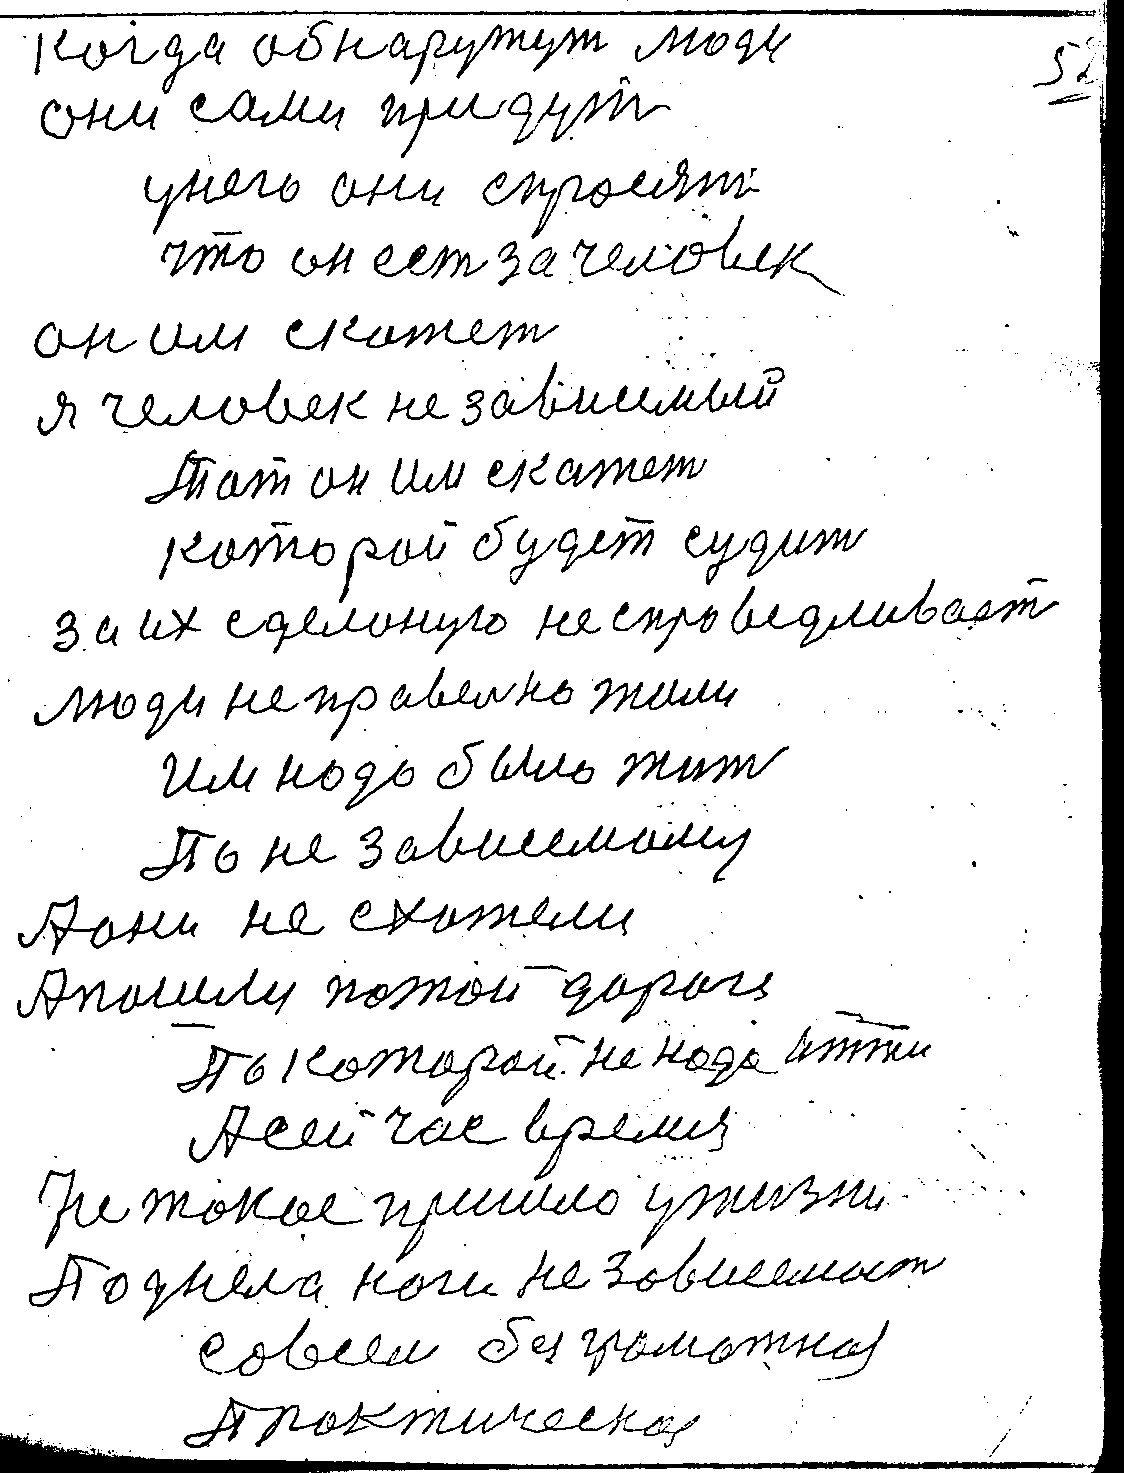 Когда обнаружут люди
52
они сами придут
унего они спросят
что он ест за человек
он им скажет
я человек не зависимый
Тот он им скажет
которой будет судит
за их сделоную неспроведливаст
люди не правелно жили
Им нодо было жит
По не зависемому
А они не схотели
А пошли потой дороги
По которой не нодо итти
А сей час время
Не токое пришло ужизни
Поднела ноги не зовисемост
совсем безграмотная
Проктическая